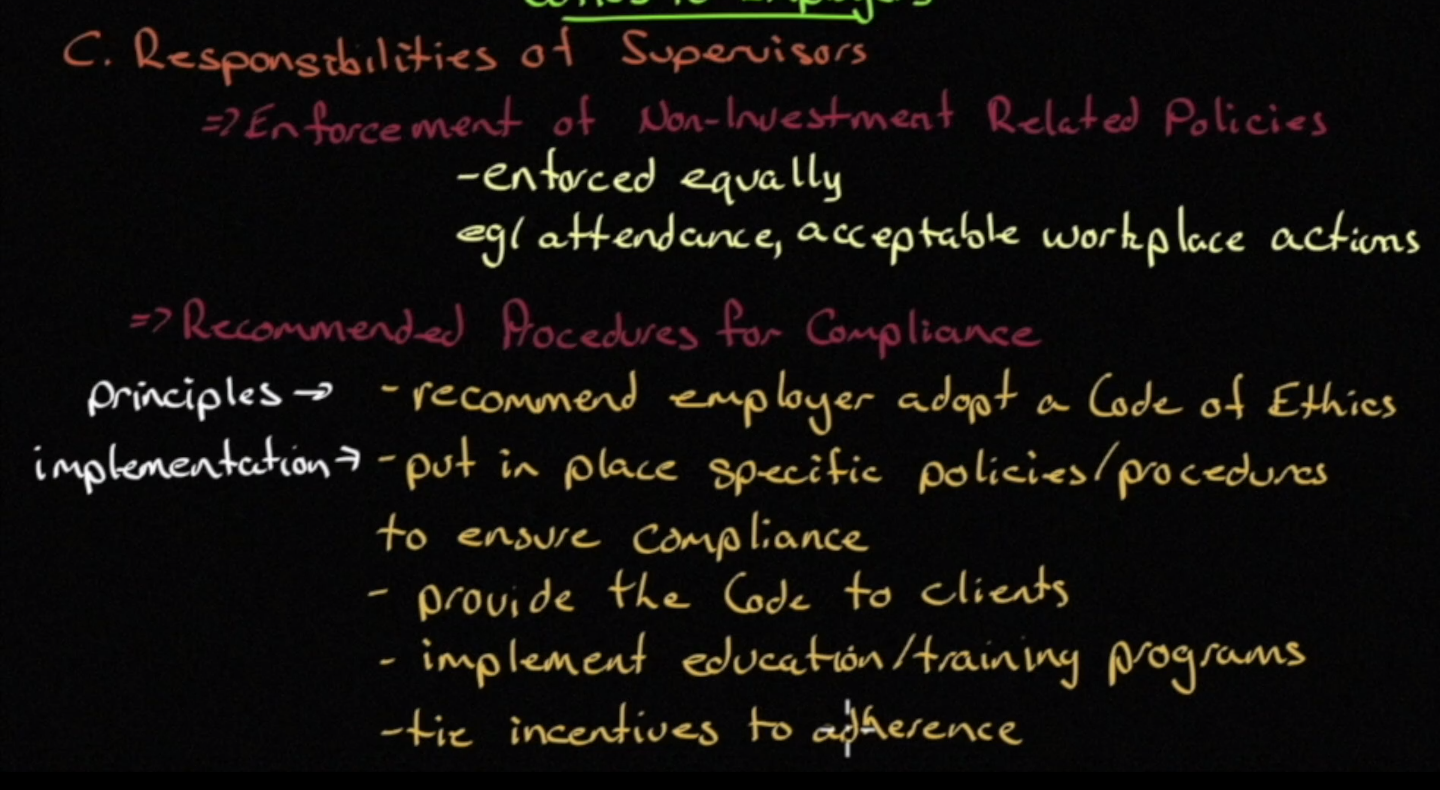 to Employers
C. Responsibilities of Supervisors
=> Enforcement of Non-Investment Related Policies
- enforced equally
eg/ attendance, acceptable workplace actions
=> Recommended Procedures for Compliance
principles → - recommend employer adopt a Code of Ethics
implementation → - put in place specific policies/procedures
to ensure compliance
- provide the Code to clients
- implement education/training programs
- tie incentives to adherence